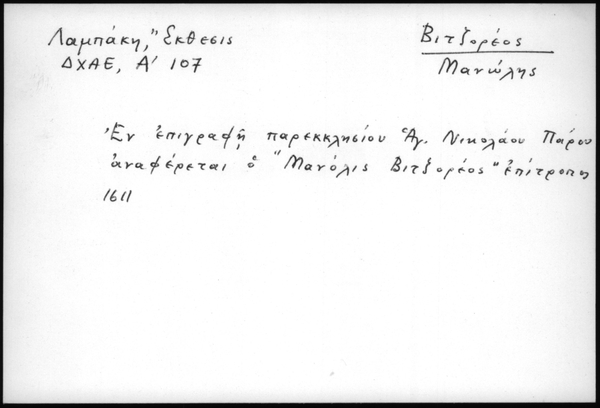 Λαμπάκη, "Εκθεσις
ΔΧΑΕ, Α' 107
Βιτζορέος
Μανώλης
Ἐν ἐπιγραφῇ παρεκκλησίου Ἁγ. Νικολάου Πάρου
ἀναφέρεται ὁ "Μανόλις Βιτζορέος" ἐπίτροπος
1611